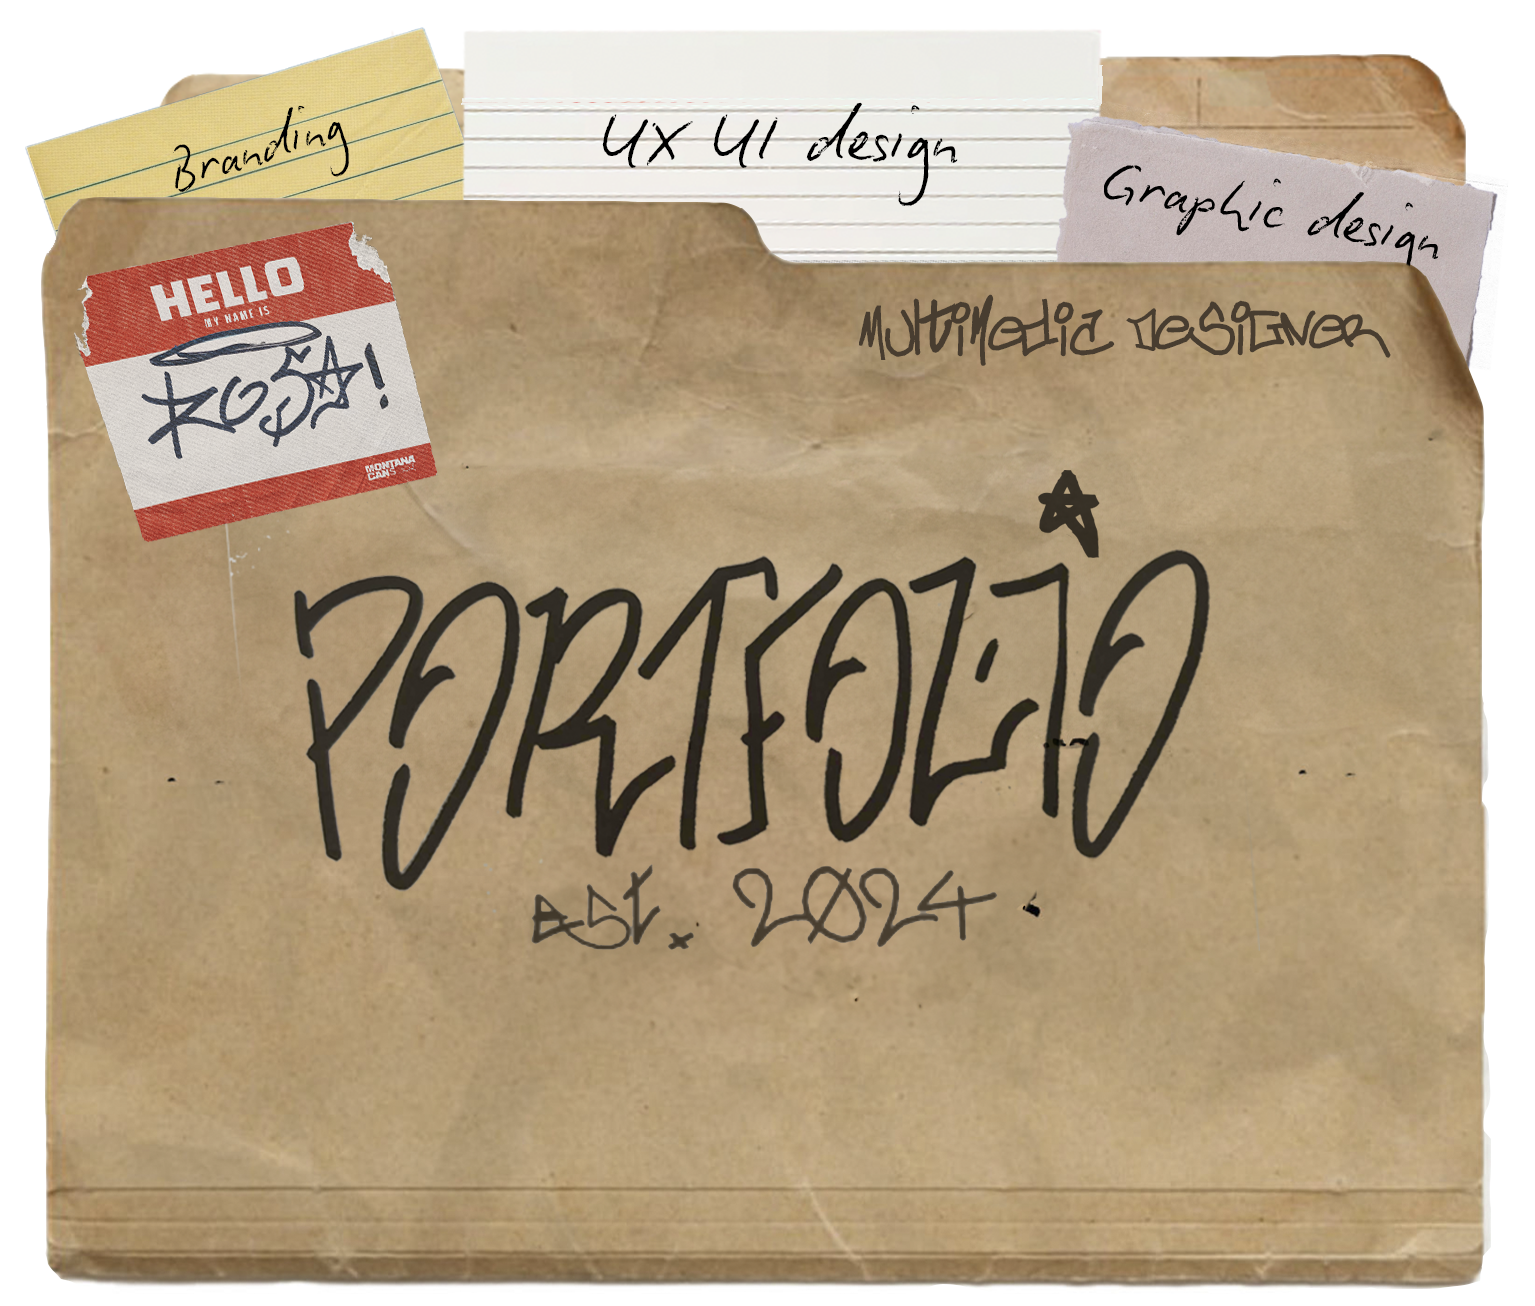 Branding
UX UI design
Graphic design
HELLO
MY NAME IS
ROSA!
MONTANA
CANS
MULTIMEDIC DESIGNER
PORTFOLIO
EST. 2024